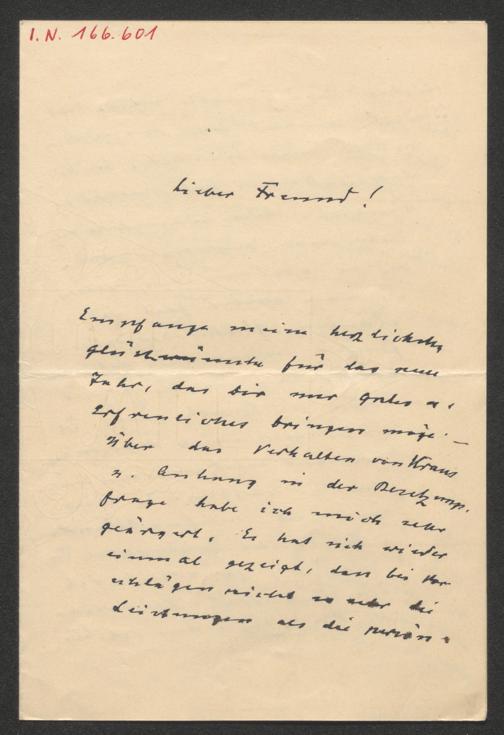 I.N. 166.601
Lieber Freund!
Empfange meine herzlichsten
Glückwünsche für das neue
Jahr, das Dir nur Gutes u.
Erfreuliches bringen möge. —
Über das Verhalten von Kraus
u. Anhang in der Besetzungs-
frage habe ich mich sehr
geärgert. Es hat sich wieder
einmal gezeigt, dass bei Vor-
schlägen nicht so sehr die
Leistungen als die persön-